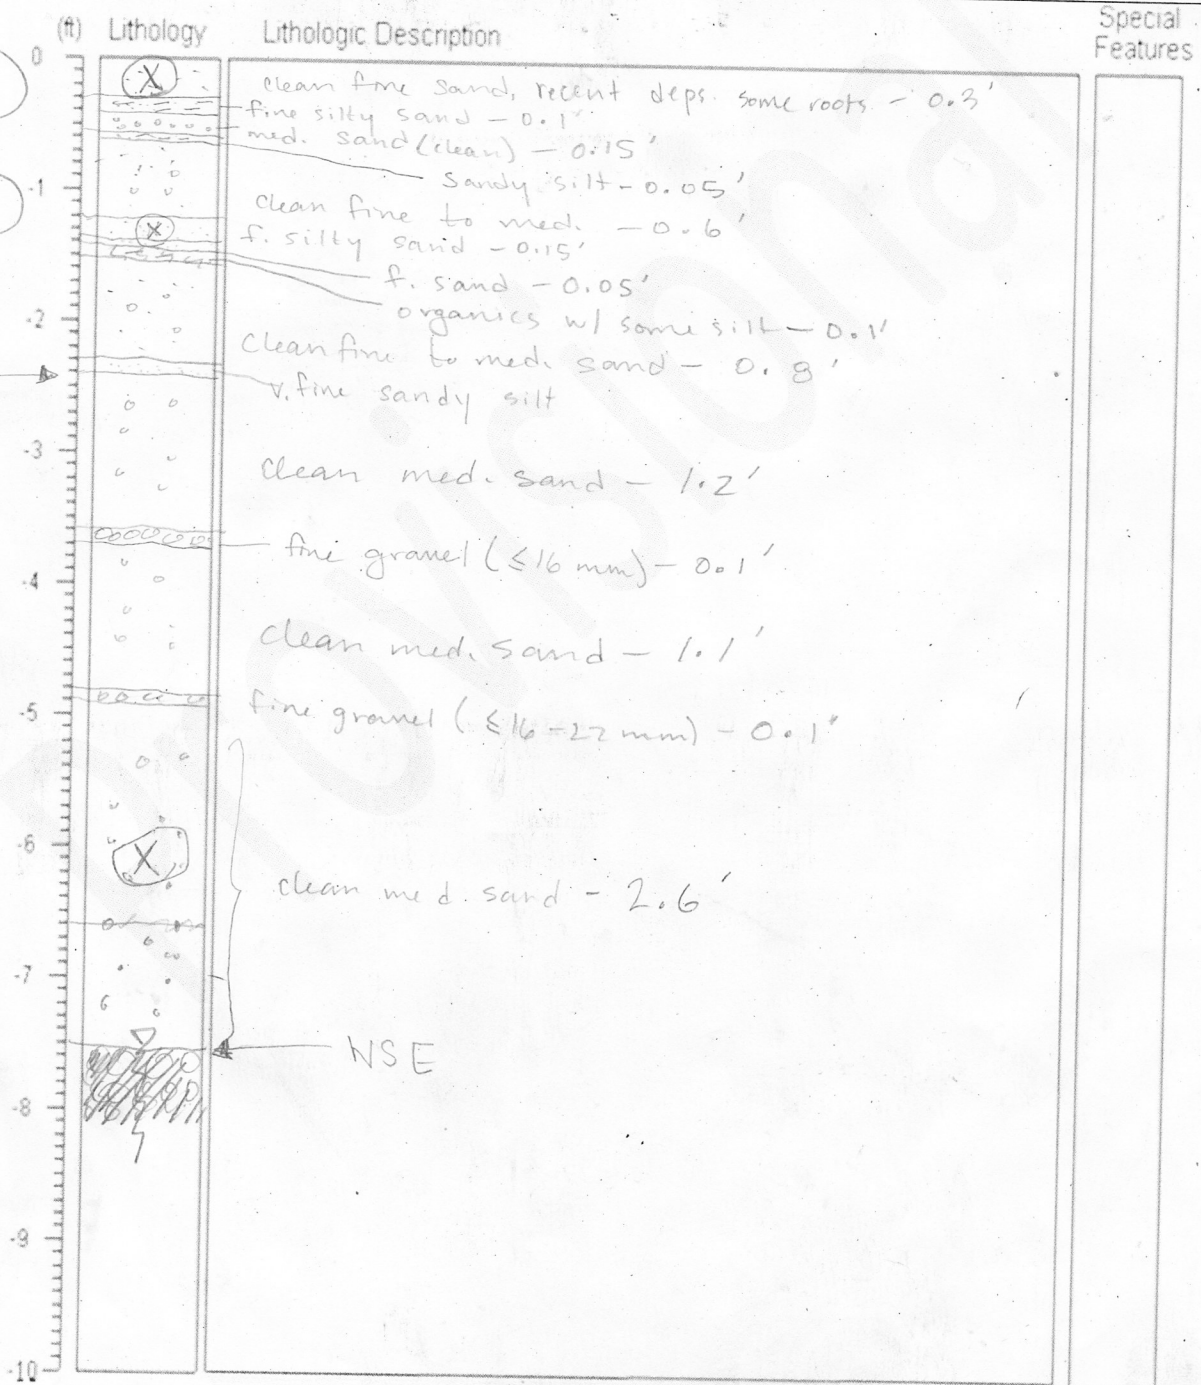 (ft) Lithology Lithologic Description Special Features
0
clean fine sand, recent deps. some roots - 0.3'
fine silty sand - 0.1'
med. sand (clean) - 0.15'
sandy silt - 0.05'
-1
clean fine to med. - 0.6'
f. silty sand - 0.15'
f. sand - 0.05'
organics w/ some silt - 0.1'
-2
clean fine to med. sand - 0.8'
v. fine sandy silt
-3
clean med. sand - 1.2'
fine gravel (≤16 mm) - 0.1'
-4
clean med. sand - 1.1'
-5
fine gravel (≤16-22 mm) - 0.1'
-6
clean med. sand - 2.6'
-7
WSE
-8
-9
-10
Provisional